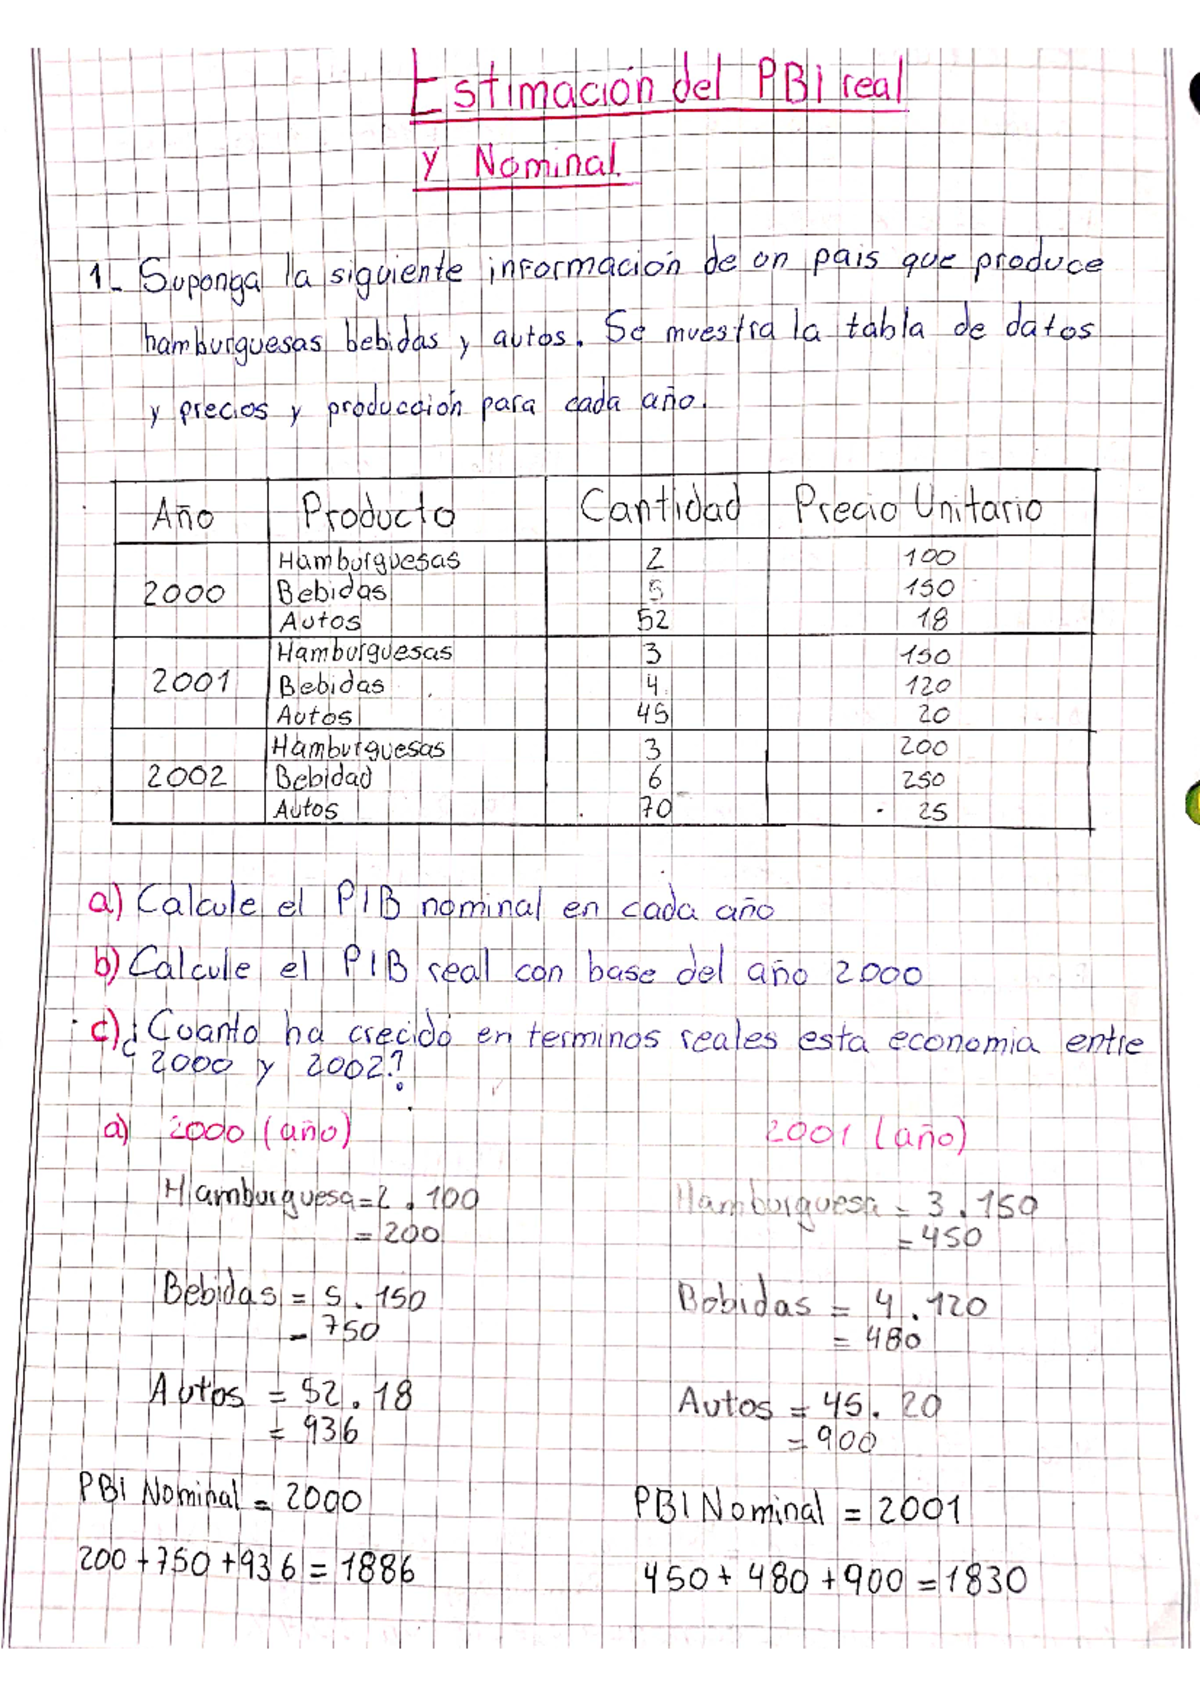 Estimación del PBI real
y Nominal.
1- Suponga la siguiente información de un pais que produce
hamburguesas bebidas y autos. Se muestra la tabla de datos
y precios y producción para cada año.
Año Producto Cantidad Precio Unitario
Hamburguesas 2 100
2000 Bebidas 5 150
Autos 52 18
Hamburguesas 3 150
2001 Bebidas 4 120
Autos 45 20
Hamburguesas 3 200
2002 Bebidad 6 250
Autos 70 25
a) Calcule el PIB nominal en cada año
b) Calcule el PIB real con base del año 2000
c) ¿Cuanto ha crecido en terminos reales esta economia entre
2000 y 2002?
a) 2000 (año) 2001 (año)
Hamburguesa = 2 . 100 Hamburguesa = 3 . 150
= 200 = 450
Bebidas = 5 . 150 Bebidas = 4 . 120
= 750 = 480
Autos = 52 . 18 Autos = 45 . 20
= 936 = 900
PBI Nominal = 2000 PBI Nominal = 2001
200 + 750 + 936 = 1886 450 + 480 + 900 = 1830